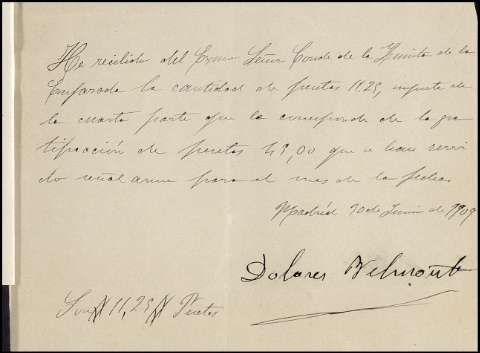 He recibido del Exmo Señor Conde de la Quinta de la
Enjarada la cantidad de pesetas 11,25, importe de
la cuarta parte que le corresponde de la gra
tificación de pesetas 45,00 que se han servi
do señalarme para el mes de la fecha
Madrid 30 de Junio de 1909
Dolores Belmonte
Son 11,25 Pesetas